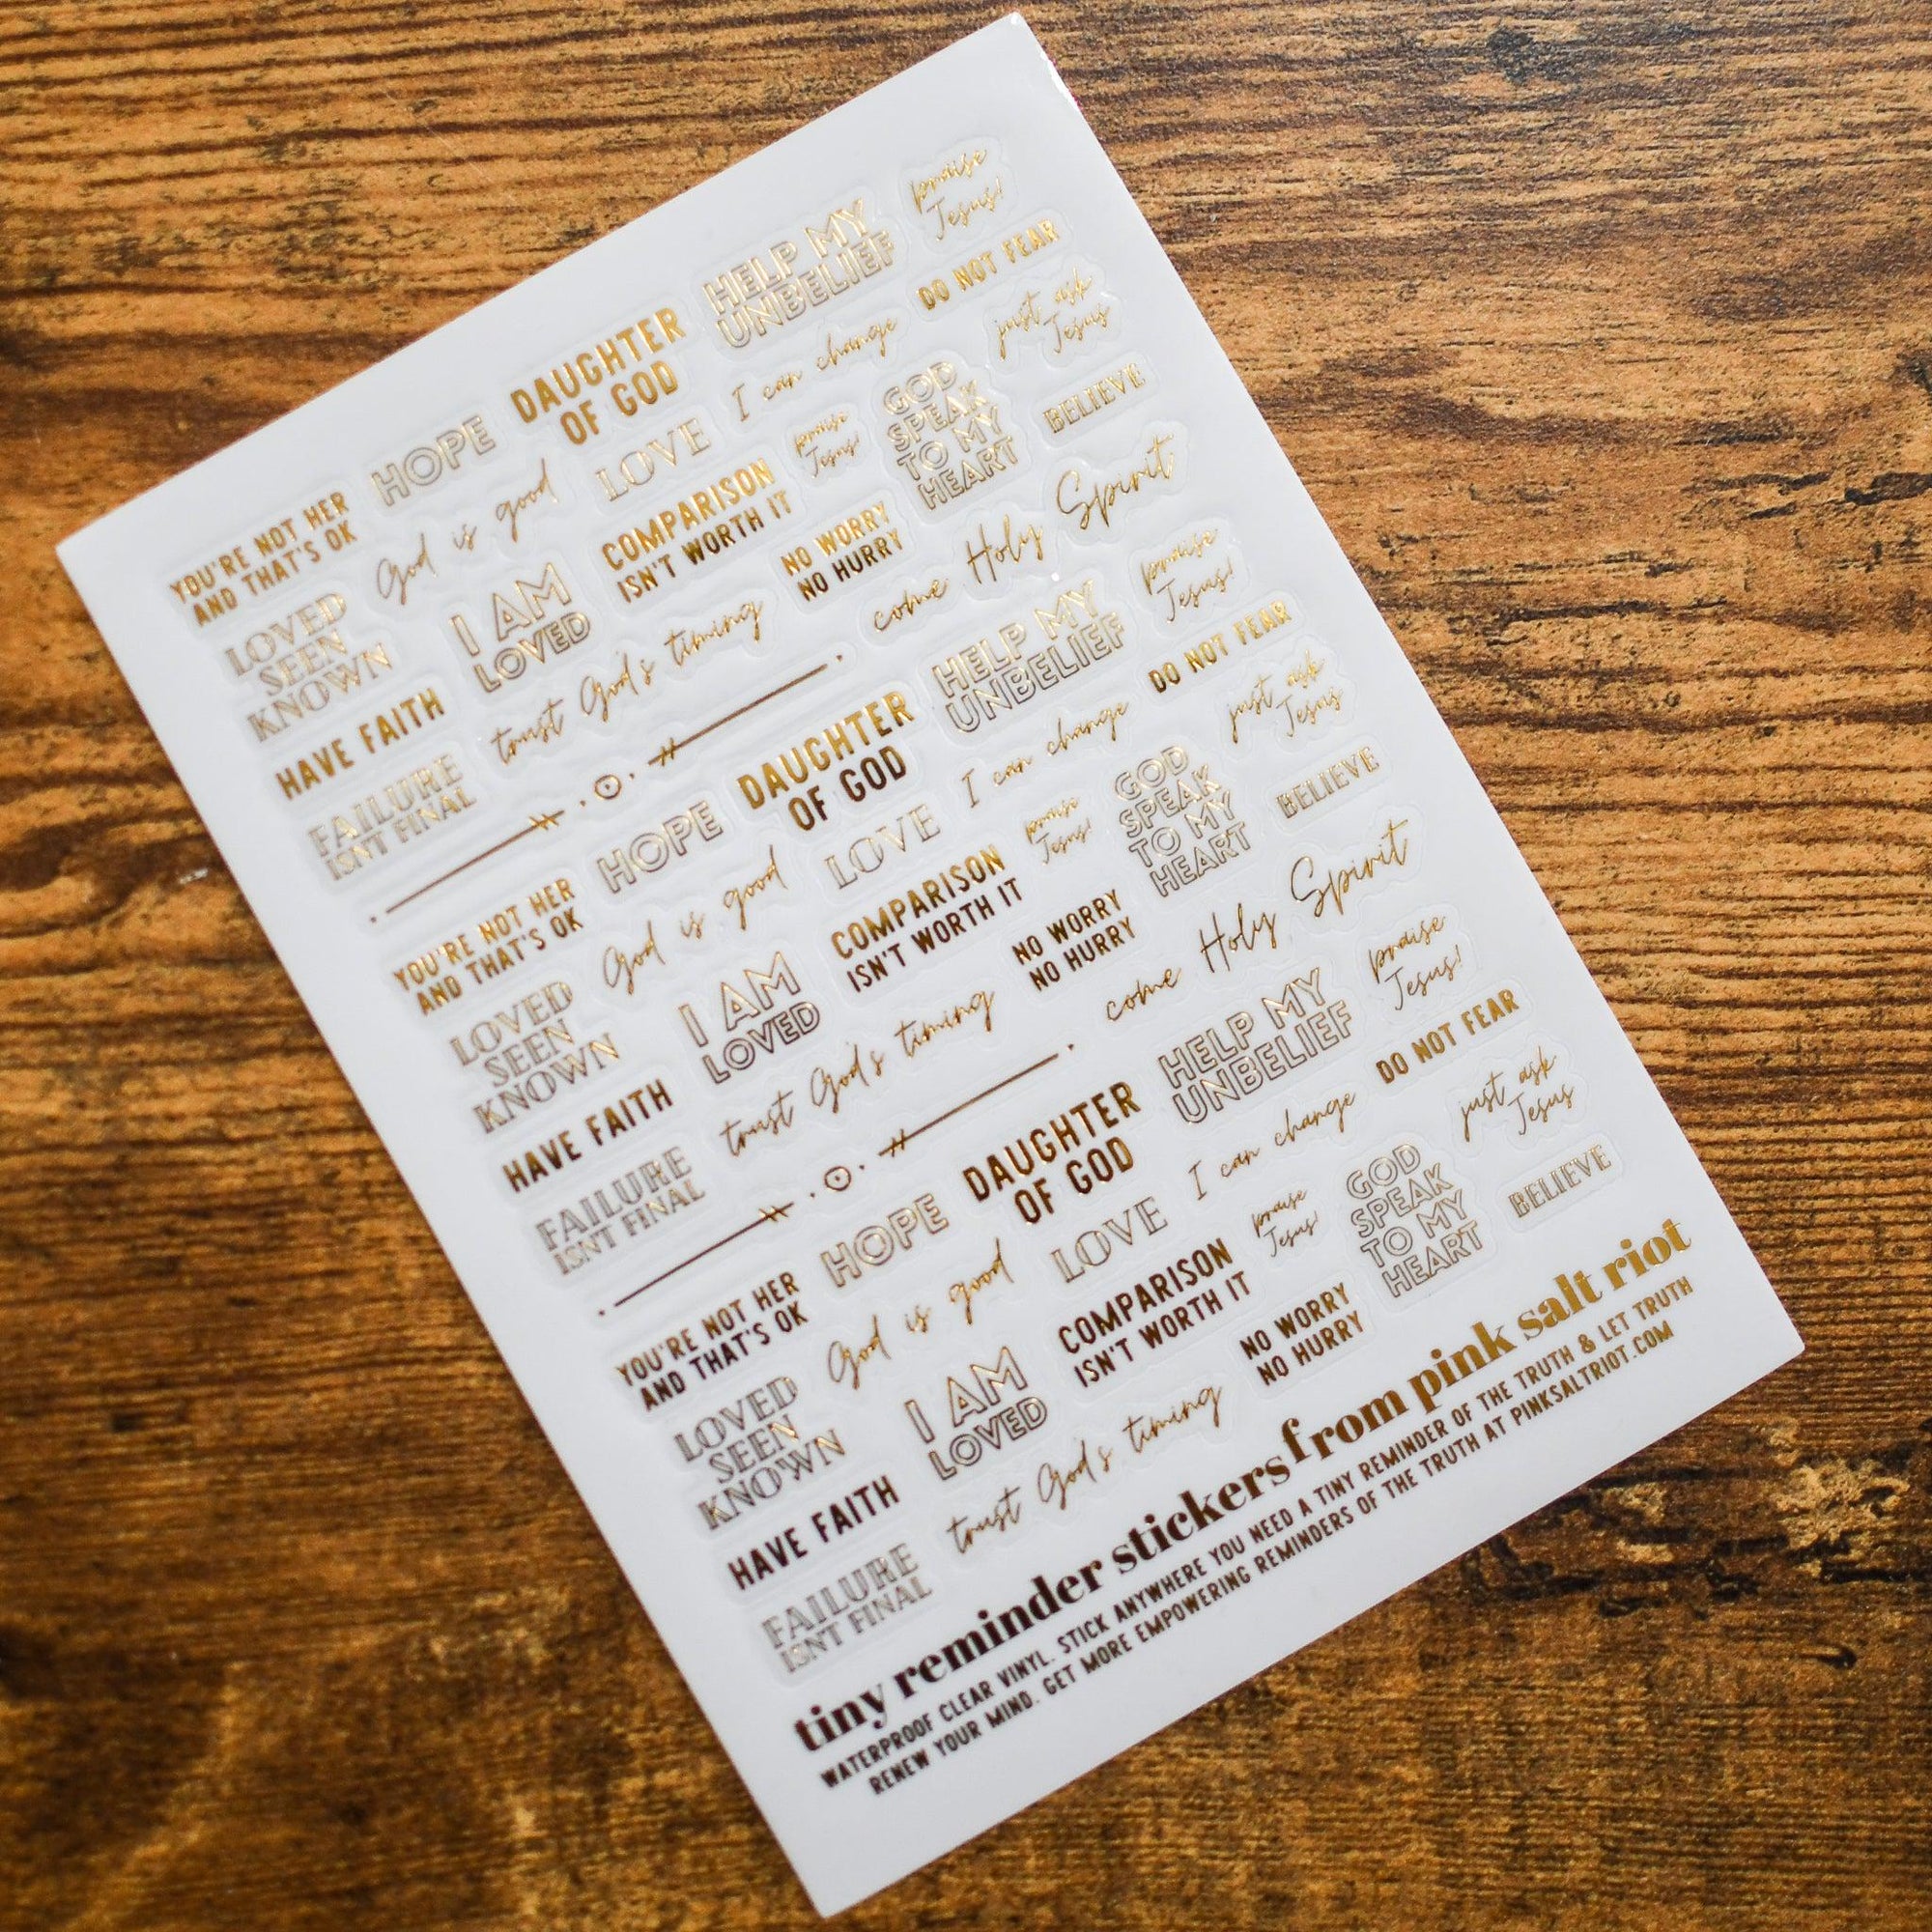 praise
Jesus!
HELP MY
UNBELIEF
DO NOT FEAR
DAUGHTER
OF GOD
I can change
just ask
Jesus
HOPE
LOVE
praise
Jesus!
GOD
SPEAK
TO MY
HEART
BELIEVE
YOU'RE NOT HER
AND THAT'S OK
God is good
COMPARISON
ISN'T WORTH IT
NO WORRY
NO HURRY
come Holy Spirit
LOVED
SEEN
KNOWN
I AM
LOVED
trust God's timing
HAVE FAITH
FAILURE
ISN'T FINAL
praise
Jesus!
HELP MY
UNBELIEF
DO NOT FEAR
DAUGHTER
OF GOD
I can change
just ask
Jesus
HOPE
LOVE
praise
Jesus!
GOD
SPEAK
TO MY
HEART
BELIEVE
YOU'RE NOT HER
AND THAT'S OK
God is good
COMPARISON
ISN'T WORTH IT
NO WORRY
NO HURRY
come Holy Spirit
LOVED
SEEN
KNOWN
I AM
LOVED
trust God's timing
HAVE FAITH
FAILURE
ISN'T FINAL
praise
Jesus!
HELP MY
UNBELIEF
DO NOT FEAR
DAUGHTER
OF GOD
I can change
just ask
Jesus
HOPE
LOVE
praise
Jesus!
GOD
SPEAK
TO MY
HEART
BELIEVE
YOU'RE NOT HER
AND THAT'S OK
God is good
COMPARISON
ISN'T WORTH IT
NO WORRY
NO HURRY
LOVED
SEEN
KNOWN
I AM
LOVED
trust God's timing
HAVE FAITH
FAILURE
ISN'T FINAL
tiny reminder stickers from pink salt riot
WATERPROOF CLEAR VINYL. STICK ANYWHERE YOU NEED A TINY REMINDER OF THE TRUTH & LET TRUTH
RENEW YOUR MIND. GET MORE EMPOWERING REMINDERS OF THE TRUTH AT PINKSALTRIOT.COM